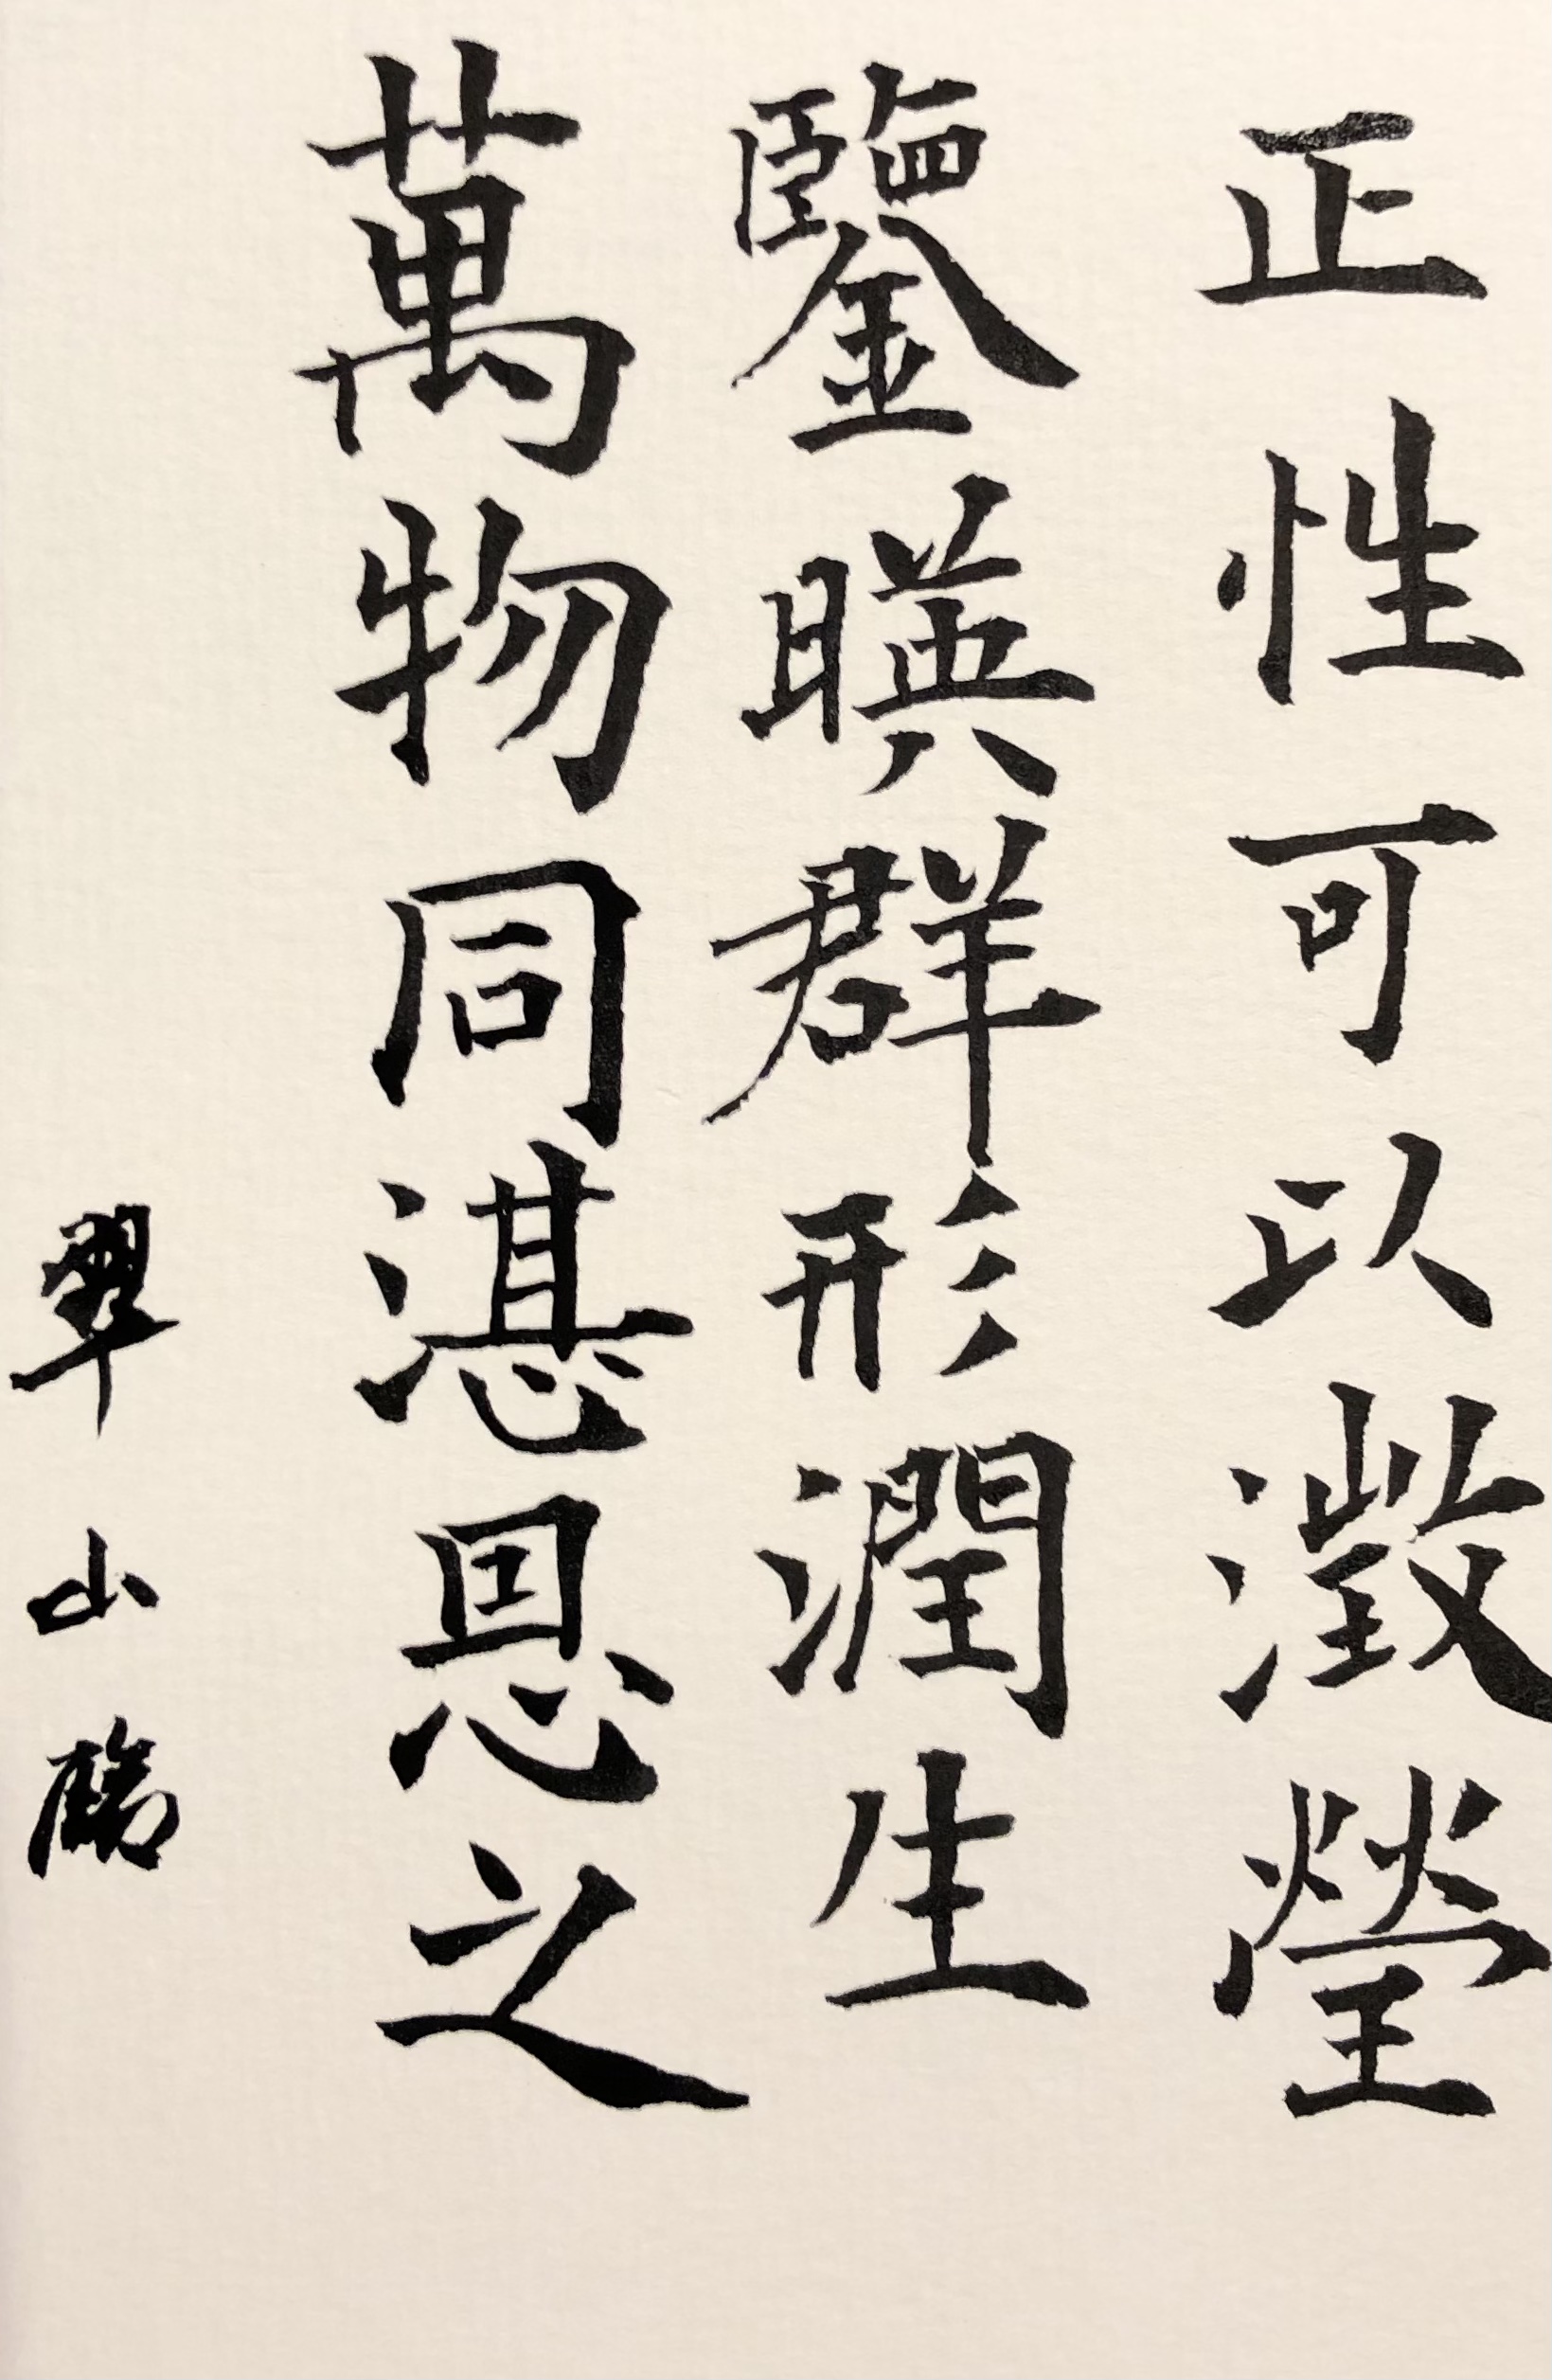 正性可以澂瑩
鑒暎群形潤生
萬物同湛恩之
翠山臨